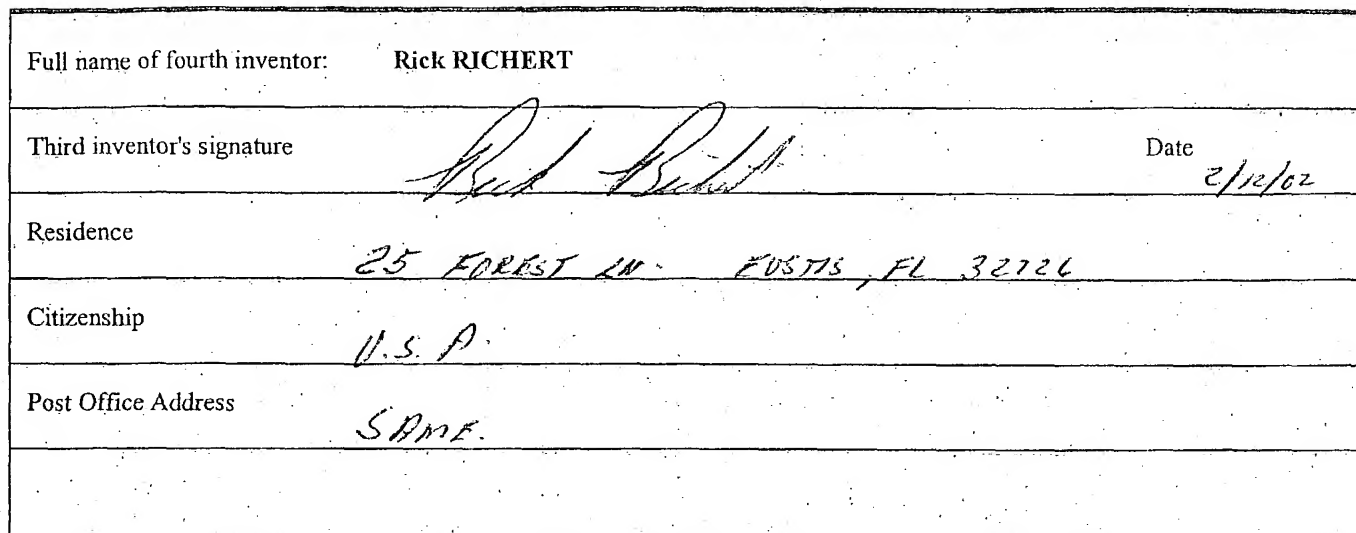 Full name of fourth inventor: Rick RICHERT
Third inventor's signature Rick Richert Date 2/12/02
Residence 25 FOREST LN. EUSTIS, FL 32726
Citizenship U.S.A.
Post Office Address SAME.